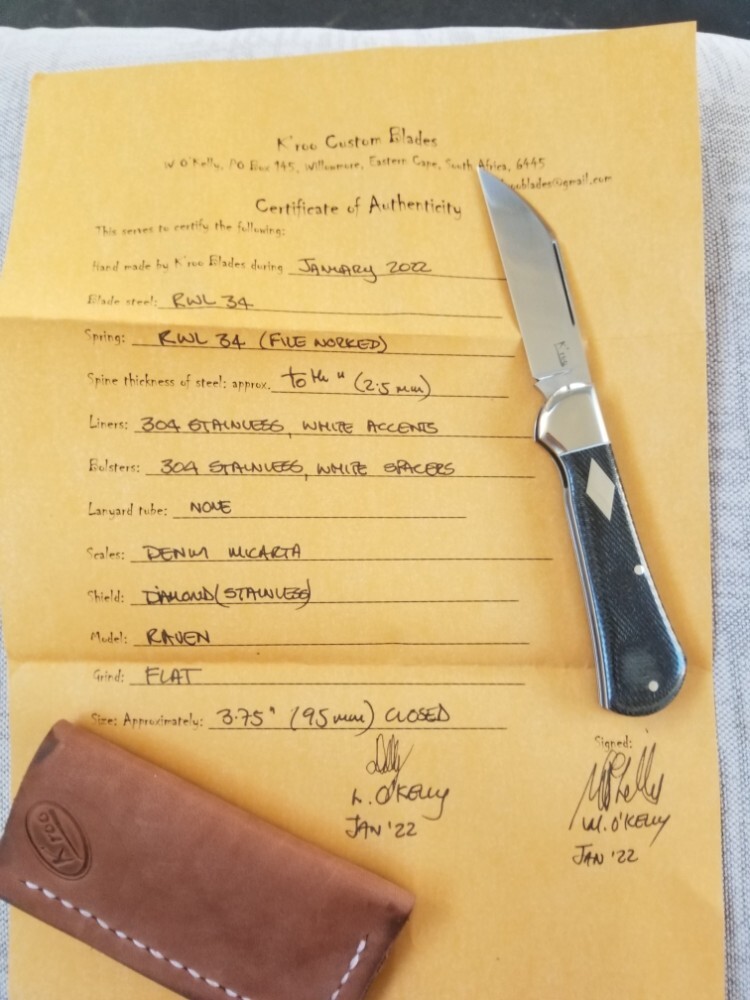 K'roo Custom Blades
W O'Kelly, PO Box 145, Willowmore, Eastern Cape, South Africa, 6445
krooblades@gmail.com
Certificate of Authenticity
This serves to certify the following:
Hand made by K'roo Blades during JANUARY 2022
Blade steel: RWL 34
Spring: RWL 34 (FILE WORKED)
Spine thickness of steel: approx. (2.5 mm)
Liners: 304 STAINLESS, WHITE ACCENTS
Bolsters: 304 STAINLESS, WHITE SPACERS
Lanyard tube: NONE
Scales: DENIM MICARTA
Shield: DIAMOND (STAINLESS)
Model: RAVEN
Grind: FLAT
Size: Approximately: 3.75" (95mm) CLOSED
Signed:
L. O'KELLY
JAN '22
W. O'KELLY
JAN '22
K'roo
K'roo